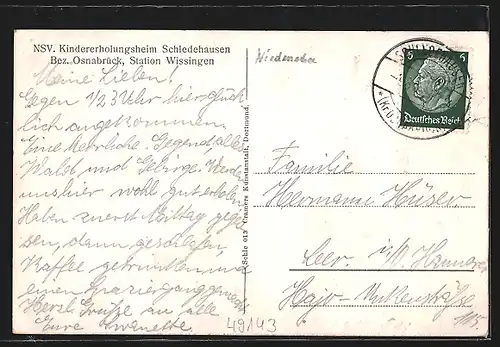 NSV. Kindererholungsheim Schledehausen
Bez. Osnabrück, Station Wissingen
Meine Lieben!
Gegen 1/2 3 Uhr hier glück-
lich angekommen
Eine herrliche Gegend, alles
Wald und Gebirge. Werde
uns hier wohl gut erholen
Haben zuerst Mittag geges-
sen, dann geschlafen,
Kaffee getrunken und
einen Spaziergang gemacht
Herzl. Grüße an alle
Eure
49143
Schle 013 Cramers Kunstanstalt, Dortmund.
6 6
Deutsches Reich
Familie
Hermann Hüser
i/W.